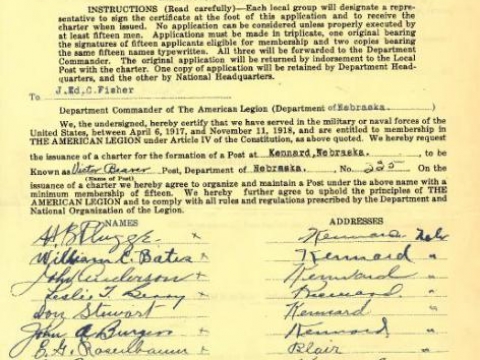 INSTRUCTIONS (Read carefully)—Each local group will designate a repre-
sentative to sign the certificate at the foot of this application and to receive the
charter when issued. No application can be considered unless properly executed by
at least fifteen men. Applications must be made in triplicate, one original bearing
the signatures of fifteen applicants eligible for membership and two copies bearing
the same fifteen names typewritten. All three will be forwarded to the Department
Commander. The original application will be returned by indorsement to the Local
Post with the charter. One copy of application will be retained by Department Head-
quarters, and the other by National Headquarters.
J.Ed,C.Fisher
To
Department Commander of The American Legion (Department of Nebraska.)
We, the undersigned, hereby certify that we have served in the military or naval forces of the
United States, between April 6, 1917, and November 11, 1918, and are entitled to membership in
THE AMERICAN LEGION under Article IV of the Constitution, as above quoted. We hereby request
the issuance of a charter for the formation of a Post at Kennard,Nebraska. , to be
Known as Victor Beaver Post, Department of Nebraska. No. 225 On the
(Name of Post)
issuance of a charter we hereby agree to organize and maintain a Post under the above name with a
minimum membership of fifteen. We hereby further agree to uphold the principles of THE
AMERICAN LEGION and to comply with all rules and regulations prescribed by the Department and
National Organization of the Legion.
NAMES ADDRESSES
Kennard Nebr
William E. Bates x Kennard "
John Anderson x Kennard "
Leslie T. x Kennard. "
Don Stewart x Kennard "
John A Burgess x Kennard "
E. H. Rosenbaum x Blair "